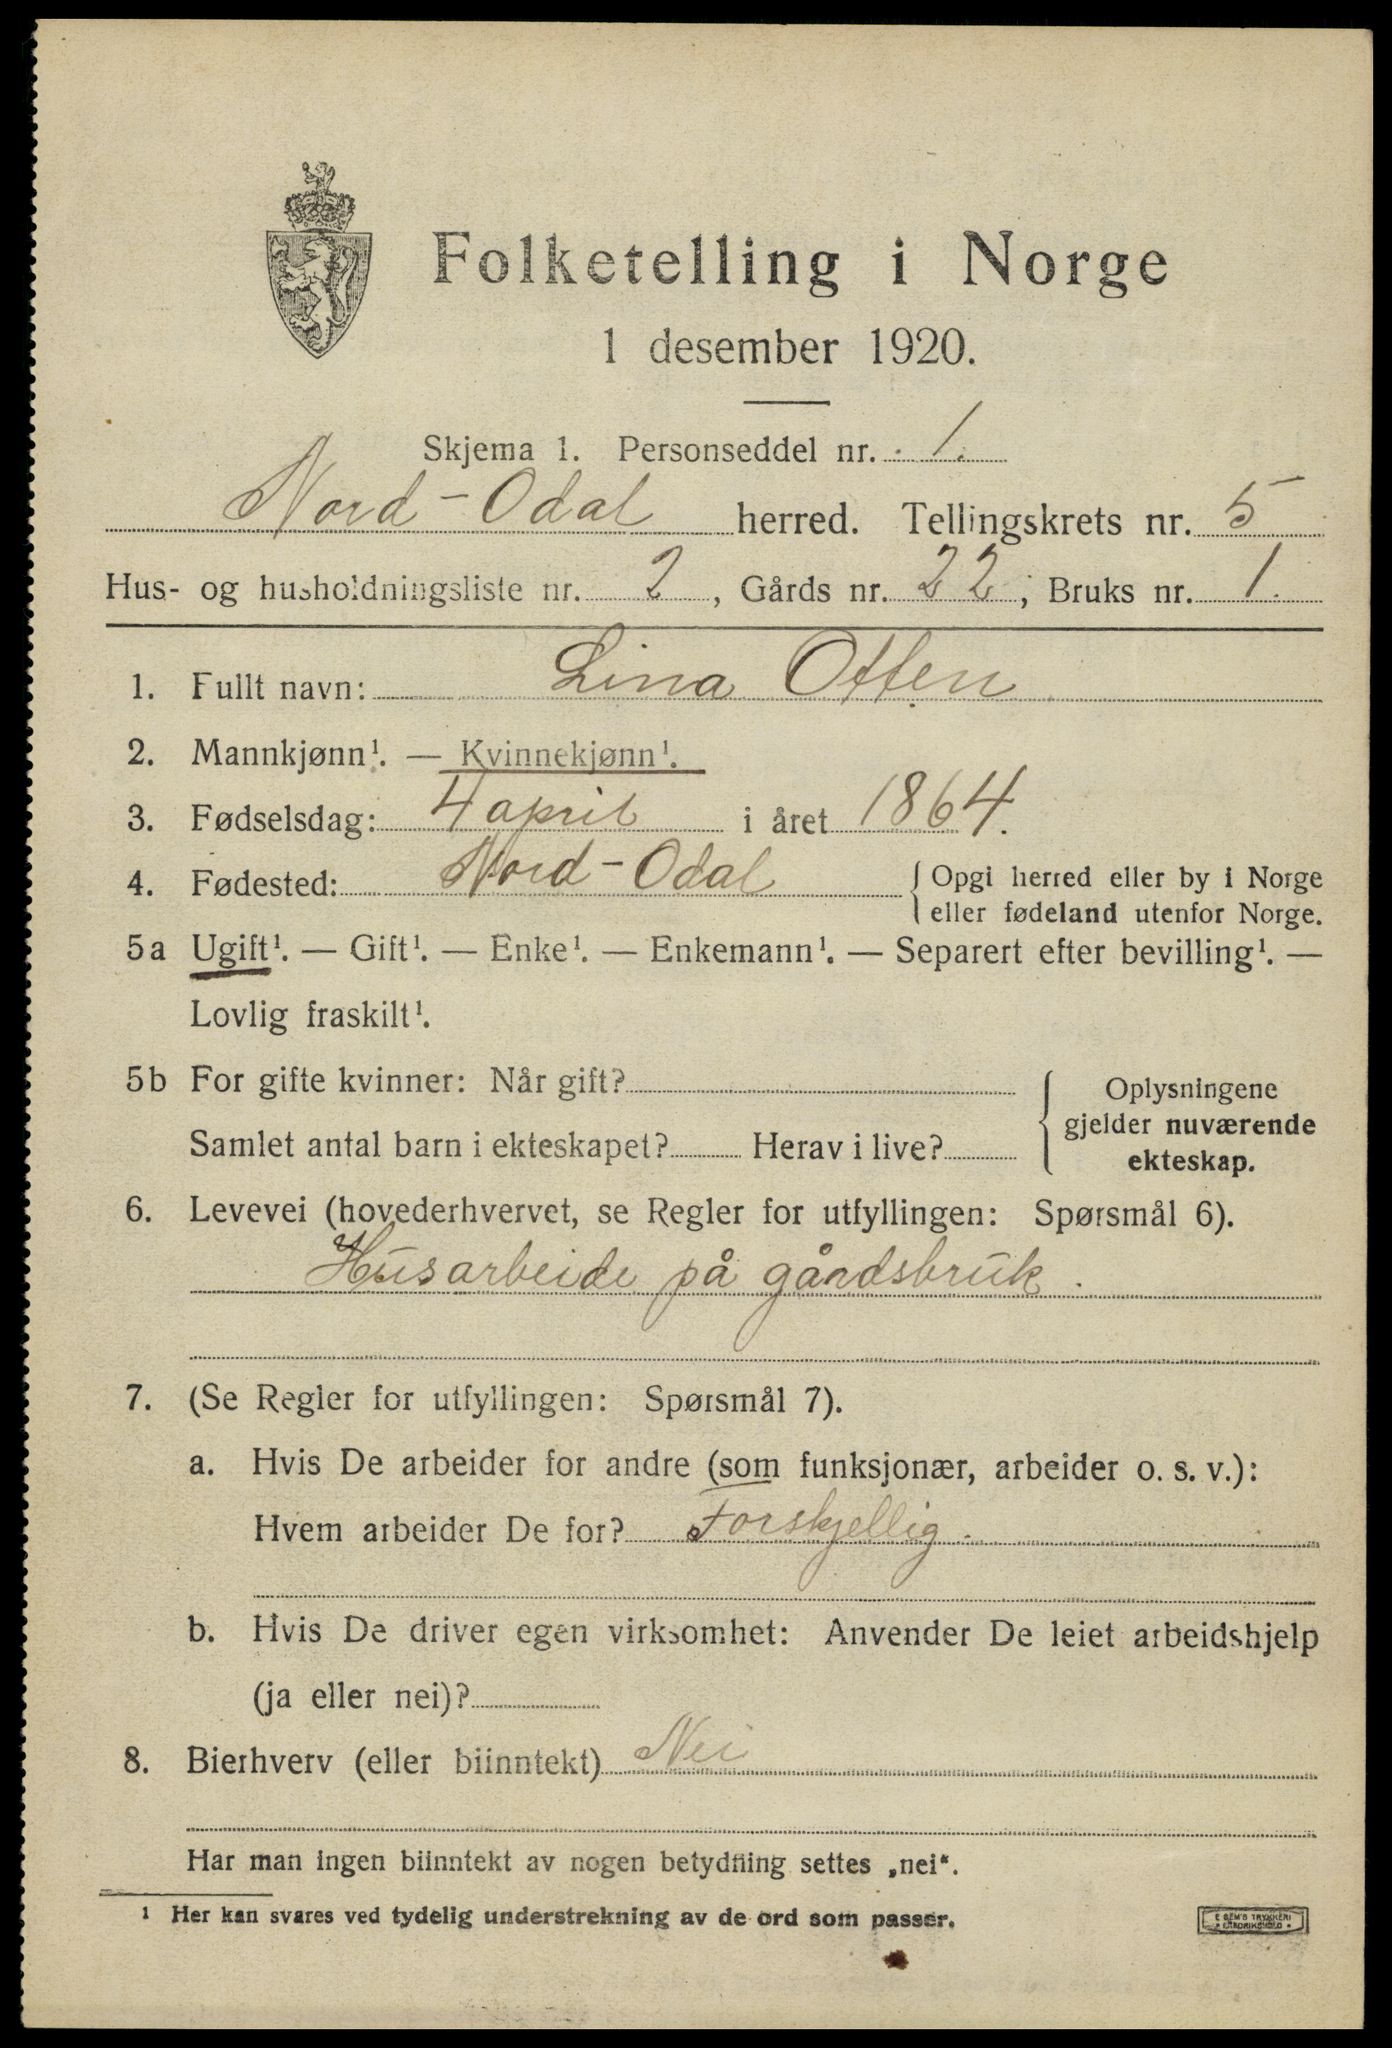 Folketelling i Norge
1 desember 1920.
Skjema 1. Personseddel nr. 1.
Nord-Odal herred. Tellingskrets nr. 5
Hus- og husholdningsliste nr. 2, Gårds nr. 22, Bruks nr. 1.
1. Fullt navn: Lina Otten
2. Mannkjønn¹. — Kvinnekjønn¹.
3. Fødselsdag: 4 april i året 1864.
4. Fødested: Nord-Odal { Opgi herred eller by i Norge
eller fødeland utenfor Norge.
5a Ugift¹. — Gift¹. — Enke¹. — Enkemann¹. — Separert efter bevilling¹. —
Lovlig fraskilt¹.
5b For gifte kvinner: Når gift?
Samlet antal barn i ekteskapet? Herav i live?
{ Oplysningene
gjelder nuværende
ekteskap.
6. Levevei (hovederhvervet, se Regler for utfyllingen: Spørsmål 6).
Husarbeide på gårdsbruk.
7. (Se Regler for utfyllingen: Spørsmål 7).
a. Hvis De arbeider for andre (som funksjonær, arbeider o. s. v.):
Hvem arbeider De for? Forskjellig.
b. Hvis De driver egen virksomhet: Anvender De leiet arbeidshjelp
(ja eller nei)?
8. Bierhverv (eller biinntekt) Nei
Har man ingen biinntekt av nogen betydning settes „nei“.
¹ Her kan svares ved tydelig understrekning av de ord som passer.
E SEM'S TRYKKERI
FREDRIKSHALD